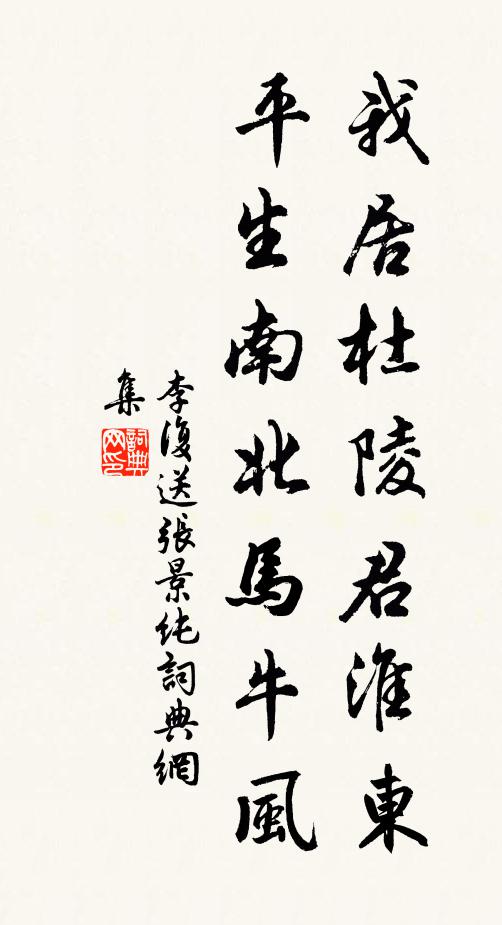 我居杜陵君淮東
平生南北馬牛風
李復送張景純詞典網
集
詞典網印